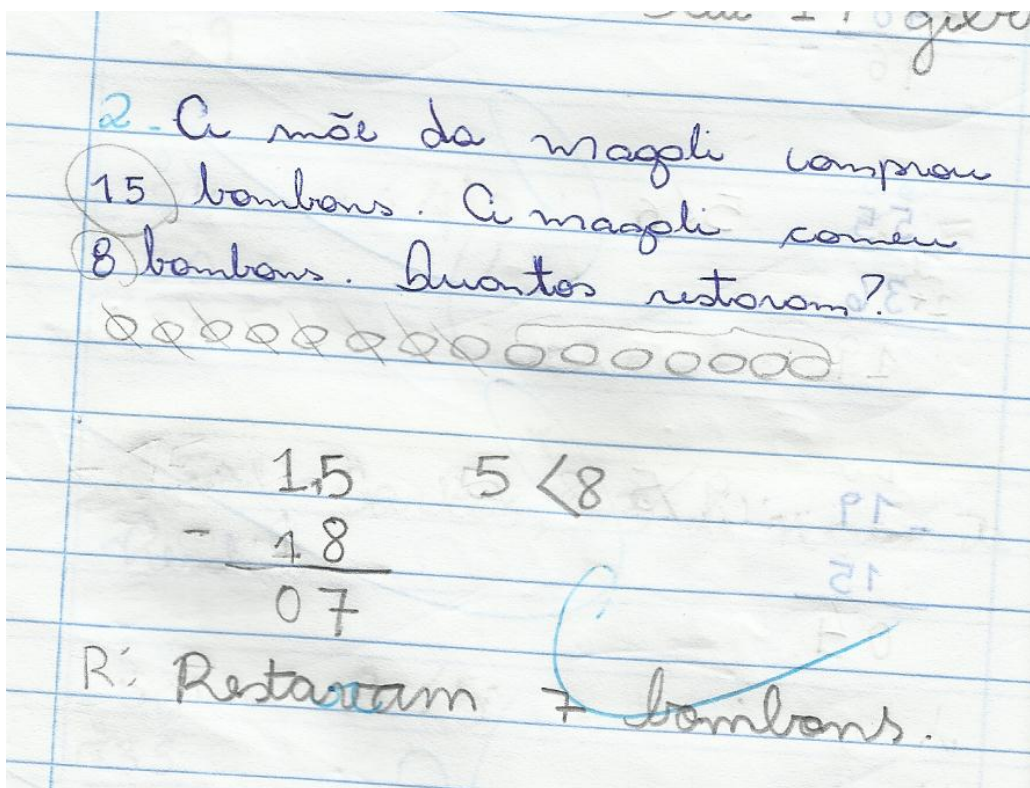 2- A mãe da magali comprou
15 bombons. A magali comeu
8 bombons. Quantos restaram?
15 5 < 8
- 18
07
R: Restaram 7 bombons.